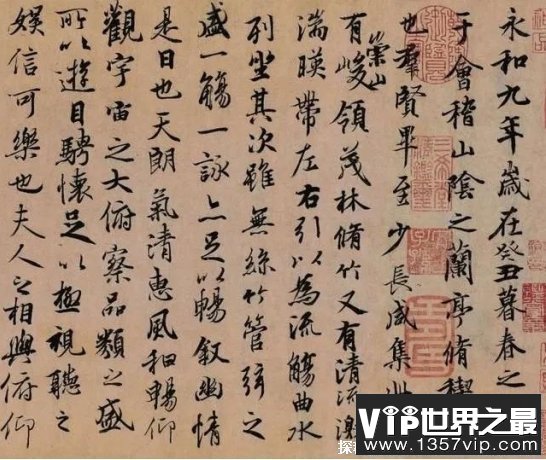 永和九年歲在癸丑暮春之
于會稽山陰之蘭亭脩禊
也羣賢畢至少長咸集此
有崇山峻領茂林脩竹又有清流激
湍暎帶左右引以為流觴曲水
列坐其次雖無絲竹管弦之
盛一觴一詠亦足以暢敘幽情
是日也天朗氣清惠風和暢仰
觀宇宙之大俯察品類之盛
所以遊目騁懷足以極視聽之
娛信可樂也夫人之相與俯仰
VIP世界之最
www.1357vip.com